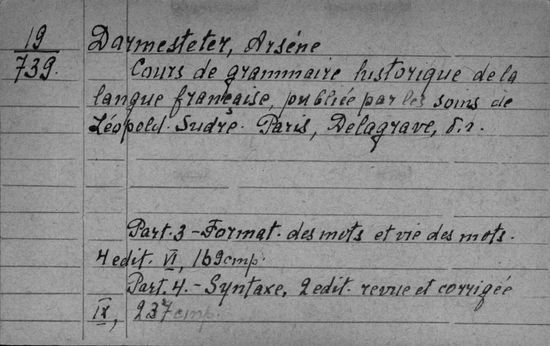 19
739.
Darmesteter, Arséne
Cours de grammaire historique de la
langue française, publiée par les soins de
Léopold Sudre. Paris, Delagrave, б.г.
Part. 3 - Format. des mots et vie des mots.
4 edit. VI, 169 стр.
Part. 4. - Syntaxe, 2 edit. revue et corrigée
IX, 237 стр.